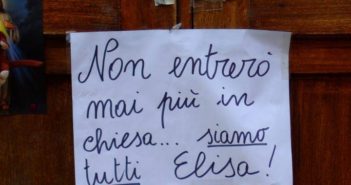 Non entrerò
mai più in
chiesa... siamo
tutti Elisa!